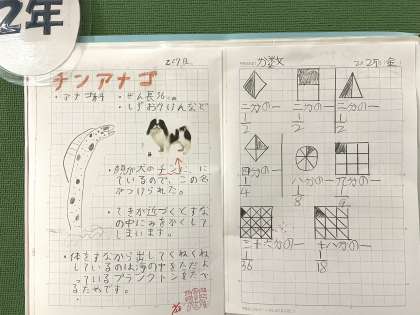 2年
チンアナゴ
・アナゴ科 ・ぜん長36cm
・しずおかけんなど
・顔が犬のチンに
にているので、この名
がつけられた。
・てきが近づくとすな
の中にみをかくして
しまいます。
・体をすなから出してくねくね
しているのは海の中をただよ
っているプランクトンをたべ
るためです。
分数
二分の一
1/2
二分の一
1/2
二分の一
1/2
四分の一
1/4
八分の一
1/8
九分の一
1/9
三十六分の一
1/36
十八分の一
1/18